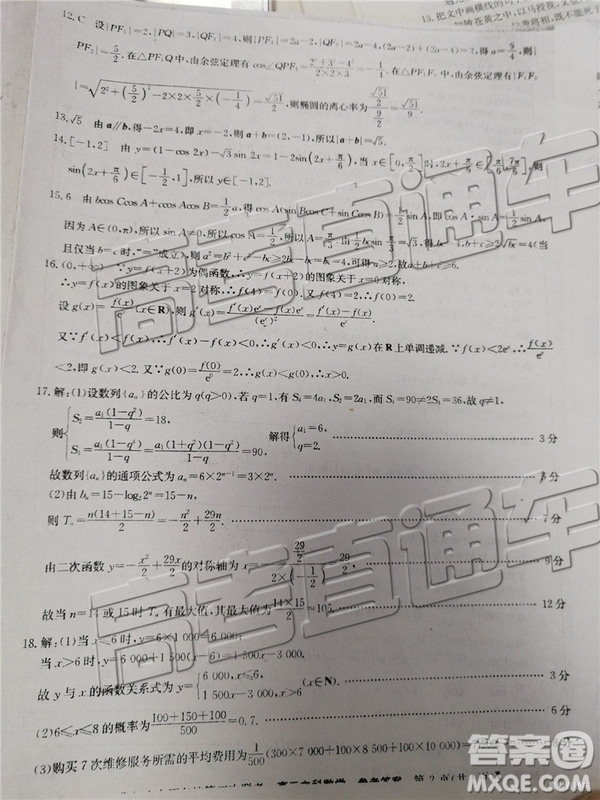 13.把文中画横线的句
12.C 设|PF₁|=2,|PQ|=3,|QF₁|=4,则|PF₂|=2a-2,|QF₂|=2a-4,(2a-2)+(2a-4)=3,得a=9/4,则
|PF₂|=5/2.在△PF₁Q中,由余弦定理有cos∠QPF₁=(2²+3²-4²)/(2×2×3)=-1/4.在△PF₁F₂中,由余弦定理有|F₁F₂
|=√(2²+(5/2)²-2×2×5/2×(-1/4))=√51/2,则椭圆的离心率为(√51/2)/(9/2)=√51/9.
13.√5 由a∥b,得-2x=4,即x=-2,则a+b=(2,-1),所以|a+b|=√5.
14.[-1,2] 由y=(1-cos 2x)-√3sin 2x=1-2sin(2x+π/6),当x∈[0,π/2]时,2x+π/6∈[π/6,7π/6],则
sin(2x+π/6)∈[-1/2,1],所以y∈[-1,2].
15.6 由bcos Ccos A+ccos Acos B=1/2a,得cos A(sin Bcos C+sin Ccos B)=1/2sin A,即cos A·sin A=1/2sin A,
因为A∈(0,π),所以sin A≠0,所以cos A=1/2,所以A=π/3.由1/2bcsin π/3=√3,得bc=4,b+c≥2√bc=4(当
且仅当b=c时,“=”成立),则a²=b²+c²-bc≥2bc-bc=bc=4,可得a≥2,故a+b+c≥6.
16.(0,+∞) ∵y=f(x+2)为偶函数,∴y=f(x+2)的图象关于x=0对称,
∴y=f(x)的图象关于x=2对称,∴f(4)=f(0).又f(4)=2,∴f(0)=2.
设g(x)=f(x)/eˣ(x∈R),则g′(x)=(f′(x)eˣ-f(x)eˣ)/(eˣ)²=(f′(x)-f(x))/eˣ.
又∵f′(x)<f(x),∴f′(x)-f(x)<0,∴g′(x)<0,∴y=g(x)在R上单调递减.∵f(x)<2eˣ,∴f(x)/eˣ
<2,即g(x)<2.又∵g(0)=f(0)/e⁰=2,∴g(x)<g(0),∴x>0.
17.解:(1)设数列{aₙ}的公比为q(q>0),若q=1,有S₄=4a₁,S₂=2a₁,而S₄=90≠2S₂=36,故q≠1,
则{S₂=a₁(1-q²)/(1-q)=18, S₄=a₁(1-q⁴)/(1-q)=a₁(1+q²)(1-q²)/(1-q)=90, 解得{a₁=6, q=2. 3分
故数列{aₙ}的通项公式为aₙ=6×2ⁿ⁻¹=3×2ⁿ. 5分
(2)由bₙ=15-log₂2ⁿ=15-n,
则Tₙ=n(14+15-n)/2=-n²/2+29n/2. 7分
由二次函数y=-x²/2+29x/2的对称轴为x=-(29/2)/(2×(-1/2))=29/2, 9分
故当n=14或15时Tₙ有最大值,其最大值为14×15/2=105. 12分
18.解:(1)当x≤6时,y=6×1 000=6 000;
当x>6时,y=6 000+1 500(x-6)=1 500x-3 000,
故y与x的函数关系式为y={6 000,x≤6, 1 500x-3 000,x>6 (x∈N). 3分
(2)6≤x≤8的概率为(100+150+100)/500=0.7. 6分
(3)购买7次维修服务所需的平均费用为1/500(300×7 000+100×8 500+100×10 000)
高考直通车
答案圈